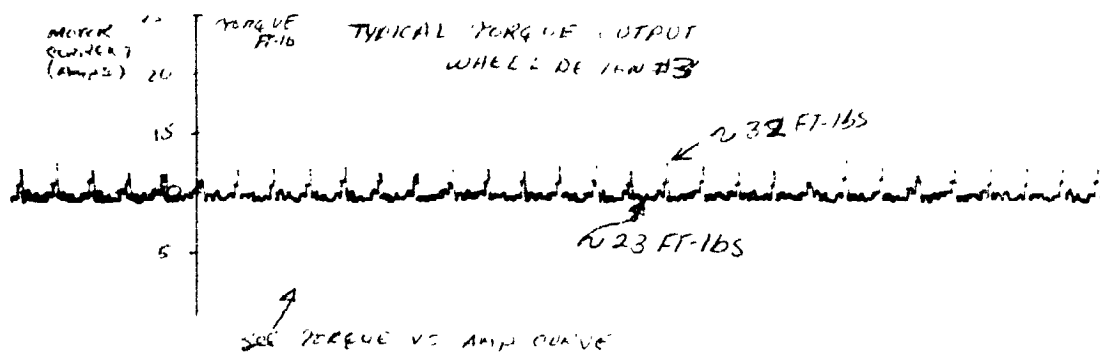 MOTOR
CURRENT
(AMPS)
TORQUE
FT-lb
TYPICAL TORQUE OUTPUT
WHEEL DESIGN #3
20
15
5
~ 32 FT-lbs
~ 23 FT-lbs
SEE TORQUE VS AMP CURVE